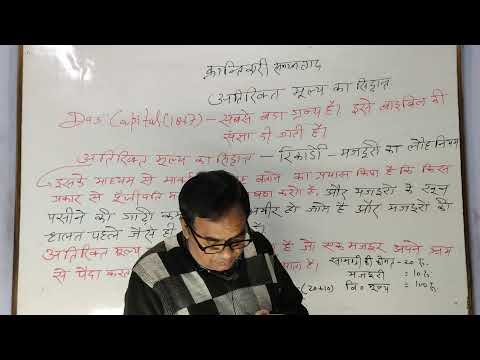 क्रान्तिकारी समाजवाद
अतिरिक्त मूल्य का सिद्धान्त
Das Capital (1867) - सबसे बडा ग्रन्थ है। इसे बाइबिल की
संज्ञा दी जाती है।
अतिरिक्त मूल्य का सिद्धान्त - रिकार्डो - मजदूरी का लौह नियम
इसके माध्यम से करने का प्रयास किया है कि किस
प्रकार से पूंजीपति करते हैं, और मजदूरों के खून
पसीने की गाढ़ी हो जाते हैं और मजदूरों की
हालत पहले जैसे ही है।
अतिरिक्त मूल्य है जो एक मजदूर अपने श्रम
से पैदा करता है।
सामग्री की कीमत - 20 रु.
मजदूरी = 10 रु.
(20+10) वि० मूल्य = 100 रु.